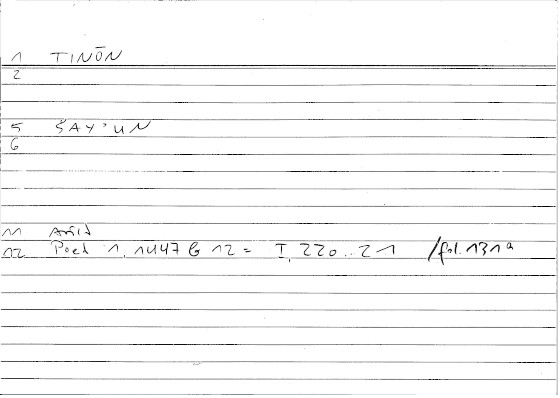 1 TINŌN
2
5 ŠAY'UN
6
11 Arist
12 Poet 1, 1447 b 12 = I, 220..21 /fol. 131ª